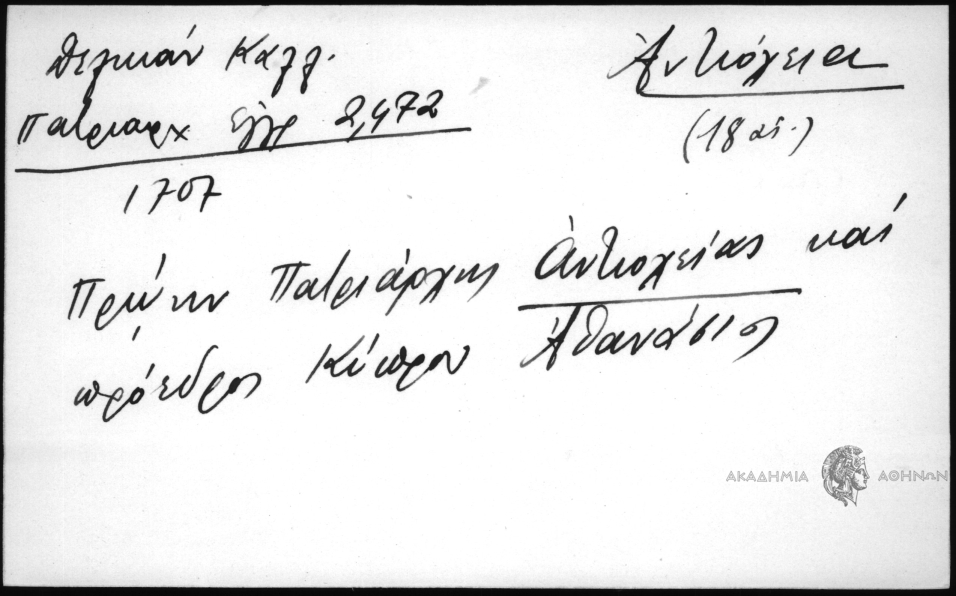 Δελικάν Καλλ.
Πατριαρχ Εγγρ 2,472
1707
Ἀντιόχεια
(18 αἰ.)
Πρώην Πατριάρχης Ἀντιοχείας καί
πρόεδρος Κύπρου Ἀθανάσιος
ΑΚΑΔΗΜΙΑ ΑΘΗΝΩΝ